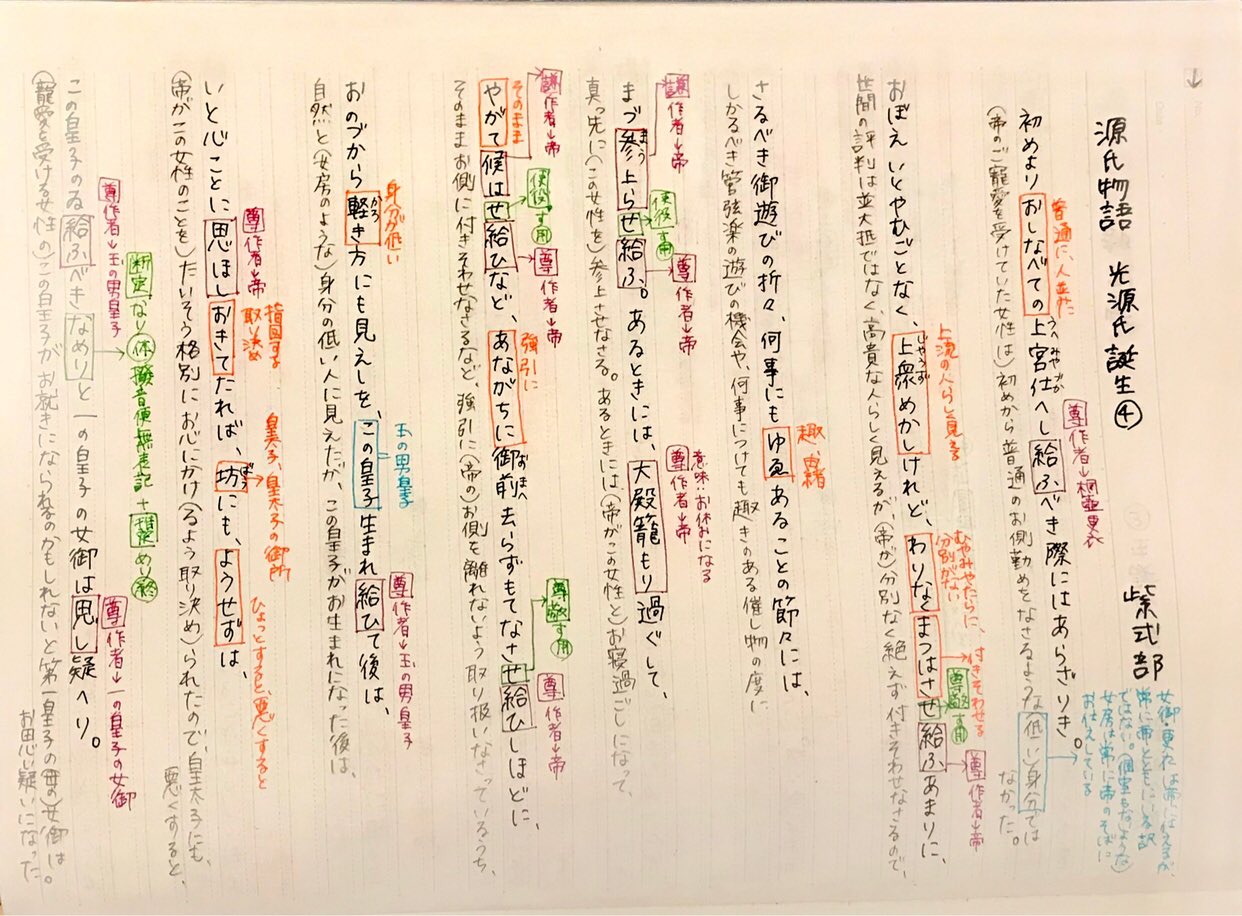 源氏物語 光源氏誕生④
紫式部
女御・更衣は帝に仕えるが、
常に帝とともにいる訳
ではない。(個室もなような)
女房は常に帝のそばに
お仕えしている
尊 作者→桐壺更衣
普通に、人並みに
初めよりおしなべての上宮仕へし給ふべき際にはあらざりき。
うへみやづか
(帝のご寵愛を受けていた女性は)初めから普通のお側勤めをなさるような低い身分では
なかった。
尊 作者→帝
尊敬 す 用
付きそわせる
むやみやたらに、
分別がない
上流の人らしく見える
おぼえいとやむごとなく、上衆めかしけれど、わりなくまつはさせ給ふあまりに、
じゃうず
世間の評判は並大抵ではなく、高貴な人らしく見えるが、(帝が)分別なく絶えず付きそわせなさるので、
趣、由緒
さるべき御遊びの折々、何事にもゆゑあることの節々には、
しかるべき管弦楽の遊びの機会や、何事につけても趣きのある催し物の度に
謙 作者→帝
使役 す 用
尊 作者→帝
意味:お休みになる
尊 作者→帝
まづ参上らせ給ふ。あるときには、大殿籠もり過ぐして、
まう
真っ先に(この女性を)参上させなさる。あるときには、(帝がこの女性と)お寝過ごしになって、
謙 作者→帝
そのまま
使役 す 用
尊 作者→帝
強引に
尊敬 す 用
尊 作者→帝
やがて候はせ給ひなど、あながちに御前去らずもてなさせ給ひしほどに、
おまへ
そのままお側に付きそわせなさるなど、強引に(帝の)お側を離れないよう取り扱いなさっているうち、
身分が低い
玉の男皇子
尊 作者→玉の男皇子
おのづから軽き方にも見えしを、この皇子生まれ給ひて後は、
かろ
自然と(女房のような)身分の低い人に見えたが、この皇子がお生まれになった後は、
尊 作者→帝
指図する
取り決め
皇太子、皇太子の御所
ひょっとすると、悪くすると
いと心ことに思ほしおきてたれば、坊にも、ようせずは、
ばう
(帝がこの女性のことを)たいそう格別にお心にかけ(るよう取り決め)られたので、皇太子にも、
悪くすると、
尊 作者→玉の男皇子
断定 なり 体 撥音便無表記 + 推定 めり 終
尊 作者→一の皇子の女御
この皇子のゐ給ふべきなめりと一の皇子の女御は思し疑へり。
(寵愛を受ける女性の)この皇子がお就きになられるのかもしれないと第一皇子の(母の)女御は。
お思い疑いになった